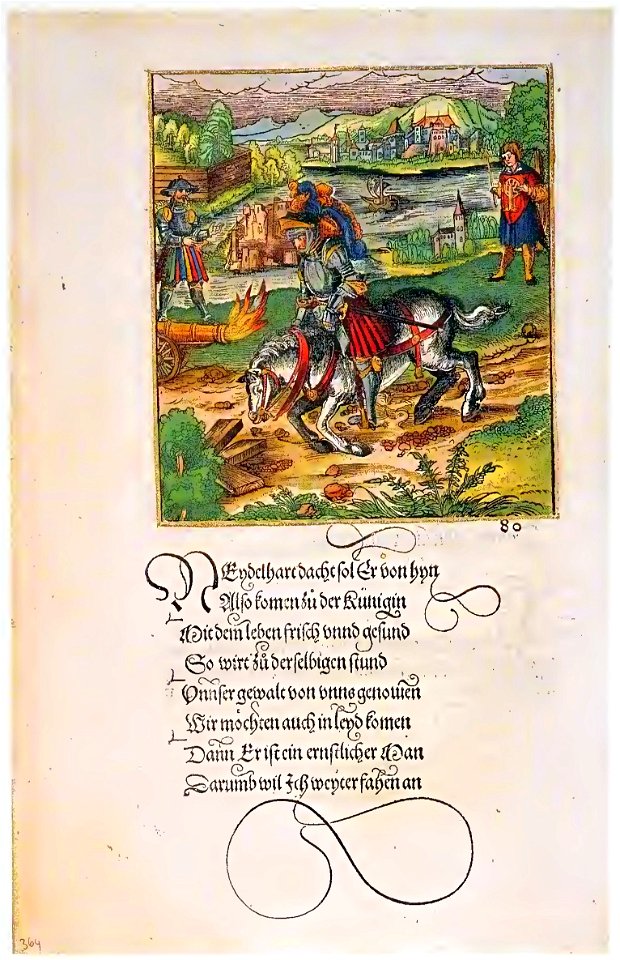 80
NEydelhart dacht sol Er von hyn
Also komen zů der Künigin
Mit dem leben frisch vnnd gesund
So wirt zů derselbigen stund
Vnnser gewalt von vnns genomen
Wir möchten auch in leyd komen
Dann Er ist ein ernstlicher Man
Darumb wil Ich weyter fahen an
364